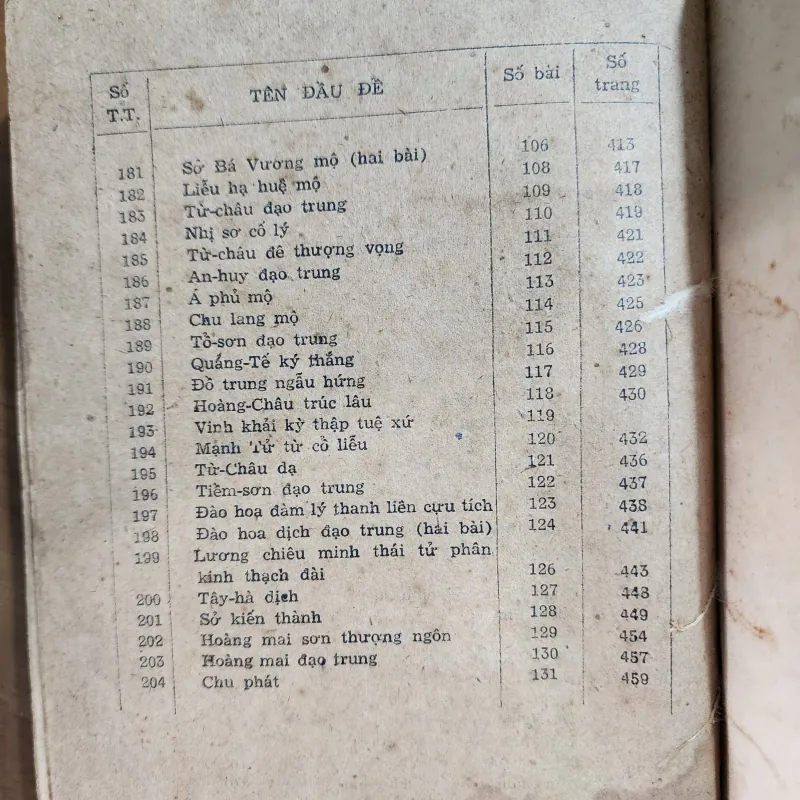 Số T.T. TÊN ĐẦU ĐỀ Số bài Số trang
181 Sở Bá Vương mộ (hai bài) 106 413
182 Liễu hạ huệ mộ 108 417
183 Từ-châu đạo trung 109 418
184 Nhị sơ cố lý 110 419
185 Từ-châu đê thượng vọng 111 421
186 An-huy đạo trung 112 422
187 Á phủ mộ 113 423
188 Chu lang mộ 114 425
189 Tổ-sơn đạo trung 115 426
190 Quảng-Tế ký thắng 116 428
191 Đồ trung ngẫu hứng 117 429
192 Hoàng-Châu trúc lâu 118 430
193 Vinh khải kỳ thập tuệ xứ 119
194 Mạnh Tử từ cổ liễu 120 432
195 Từ-Châu dạ 121 436
196 Tiềm-sơn đạo trung 122 437
197 Đào hoạ đàm lý thanh liên cựu tích 123 438
198 Đào hoa dịch đạo trung (hai bài) 124 441
199 Lương chiêu minh thái tử phân
kinh thạch đài 126 443
200 Tây-hà dịch 127 448
201 Sở kiến thành 128 449
202 Hoàng mai sơn thượng ngôn 129 454
203 Hoàng mai đạo trung 130 457
204 Chu phát 131 459